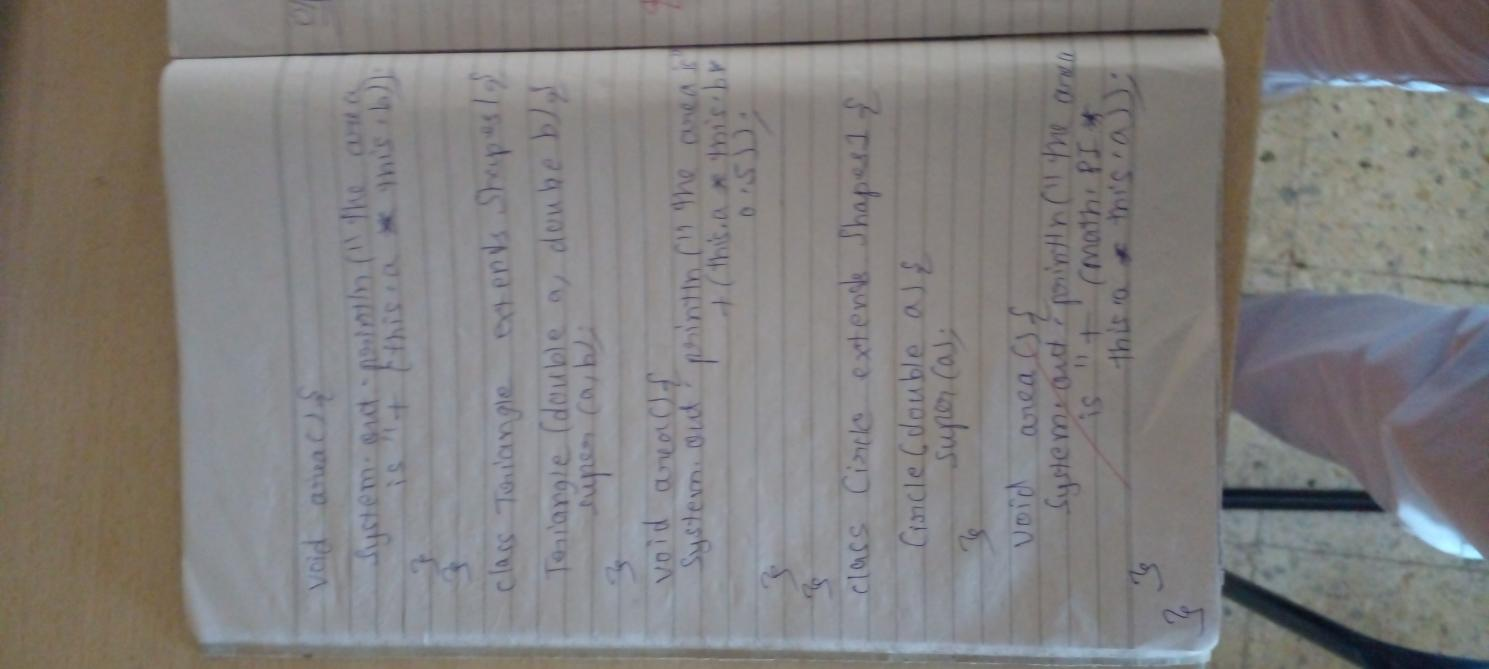 void area(){
System.out.println(" the area
is " + (this.a * this.b));
}
}
class Triangle extends Shapes1{
Triangle (double a, double b){
super (a,b);
}
void area(){
System.out.println(" the area is"
+ (this.a * this.b *
0.5));
}
}
class Circle extends Shapes1 {
Circle (double a){
super (a);
}
void area(){
System.out.println(" the area
is " + (math.PI *
this.a * this.a));
}
}